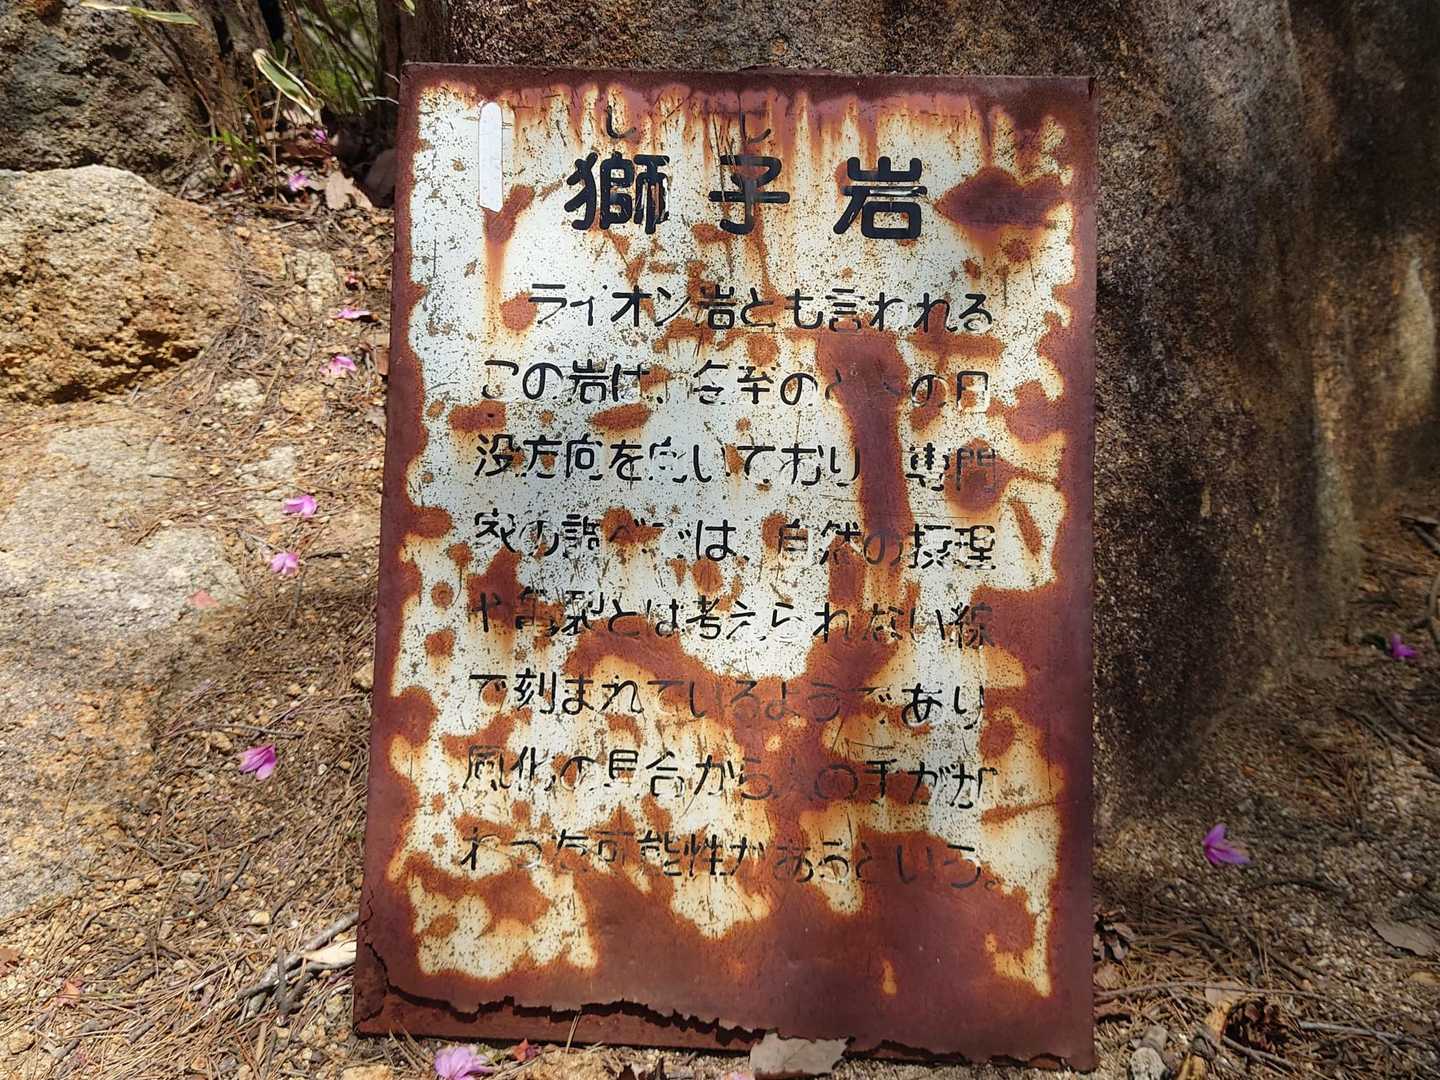 しし
獅子岩
ライオン岩とも言われる
この岩は、のときの日
没方向を向いており 専門
家の調べでは、自然の摂理
や亀裂とは考えられない線
で刻まれているようであり
風化の具合から人の手がか
わった可能性があるという。